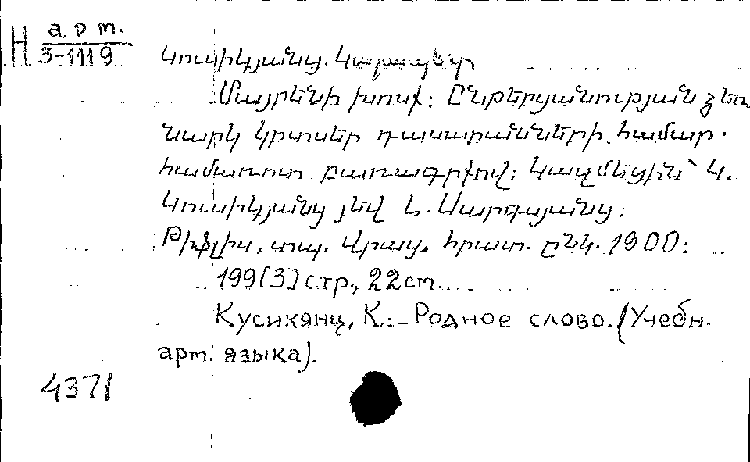 Н арт.
3-1119
Կուսիկյանց. Կարապետ
Մայրենի խոսք: Ընթերցանության ձեռ
նարկ կրտսեր դասարանների համար.
համառոտ բառագրքով: Կազմեցին՝ Կ.
Կուսիկյանց յեվ Ն. Սարգսյանց:
Թիֆլիս, տպ. Վրաց. հրատ. ընկ. 1900:
199[3] стр, 22 см
Кусикянц, К. - Родное слово. (Учебн.
арт. языка).
4371